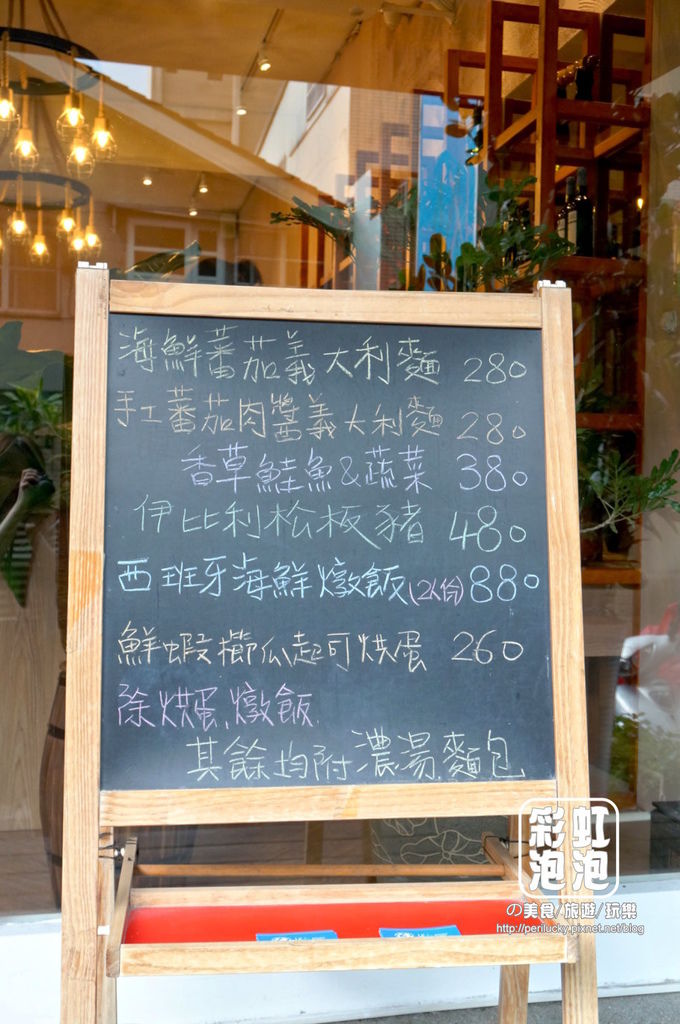 海鮮蕃茄義大利麵 280
手工蕃茄肉醬義大利麵 280
香草鮭魚&蔬菜 380
伊比利松板豬 480
西班牙海鮮燉飯(2人份) 880
鮮蝦櫛瓜起司烘蛋 260
除烘蛋、燉飯
其餘均附濃湯.麵包
彩虹泡泡
の美食/旅遊/玩樂
http://perilucky.pixnet.net/blog